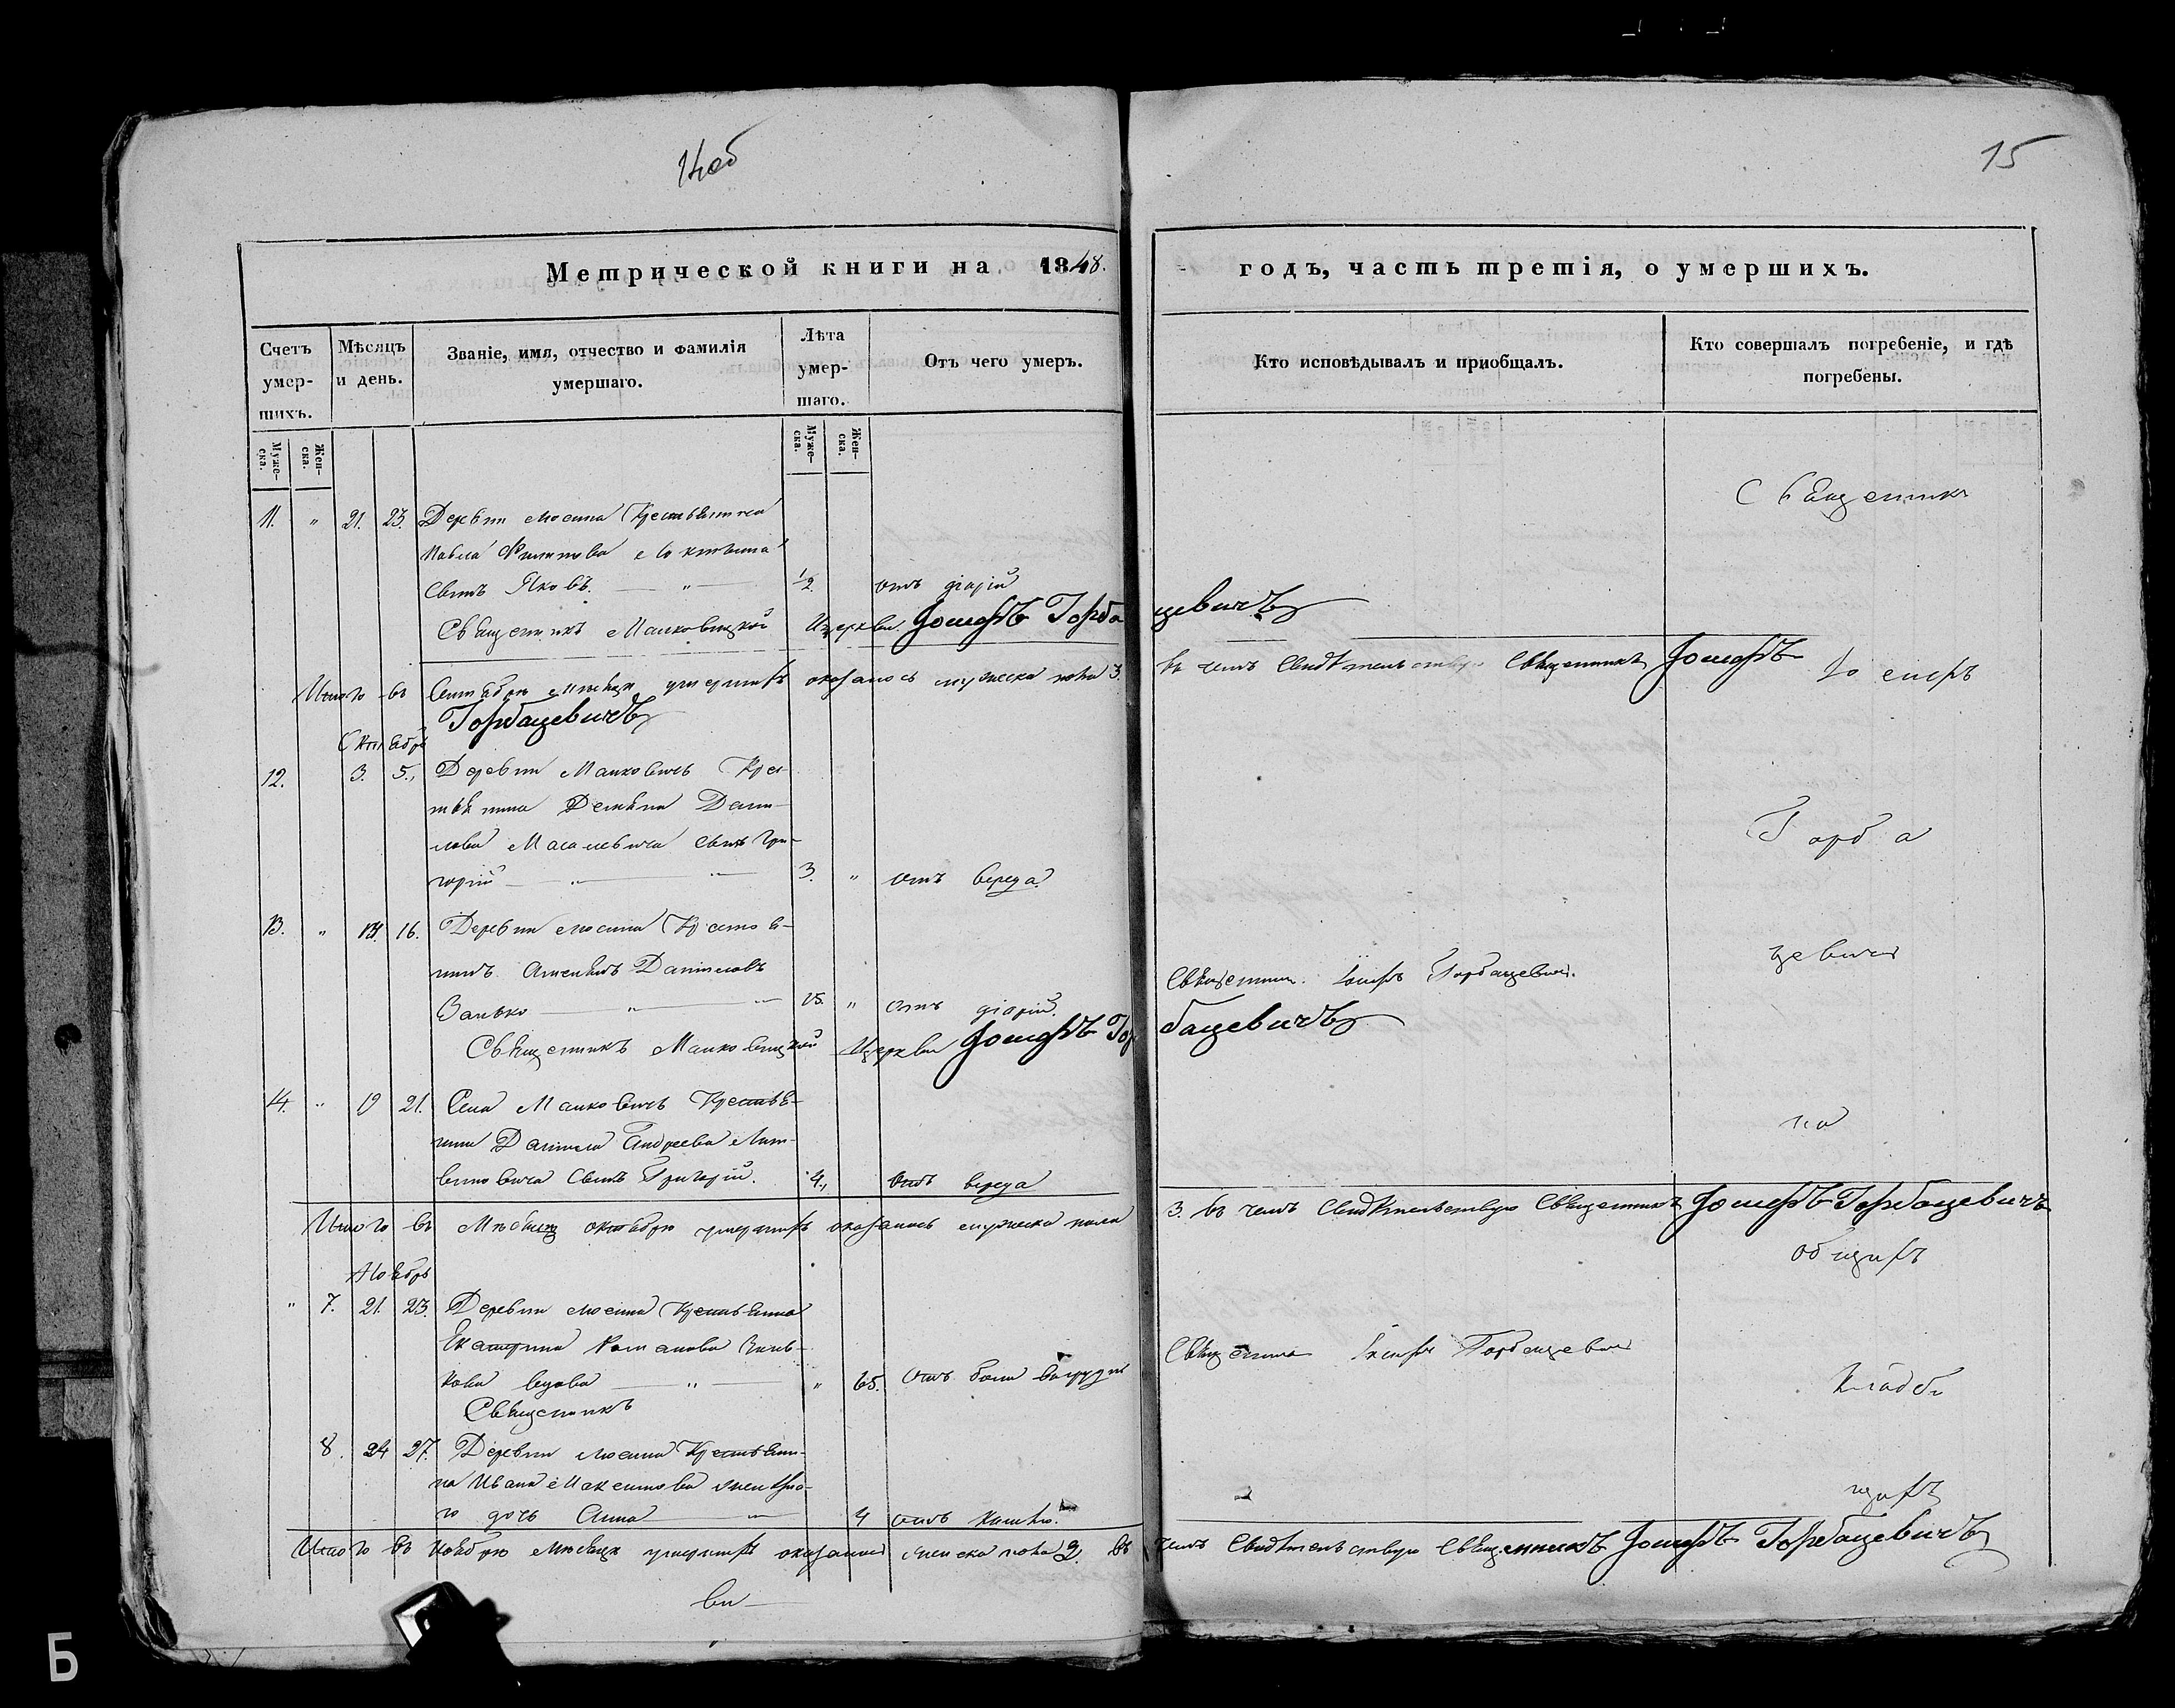 14об
15
Метрической книги на 1848.
годъ, часть третія, о умершихъ.
Счетъ умер-шихъ.
Мѣсяцъ и день.
Званіе, имя, отчество и фамилія умершаго.
Лѣта умер-шаго.
Отъ чего умеръ.
Кто исповѣдывалъ и приобщалъ.
Кто совершалъ погребеніе, и гдѣ погребены.
Муже-ска.
Жен-ска.
Муже-ска.
Жен-ска.
Священникъ
11. " 21. 23. Деревни Люсина Крестьянина
Павла Филипова
Сынъ Яковъ. — " — 1/2 отъ
Священникъ Малковицкой Церкви Іосифъ Горбацевичъ
Итого въ Сентябрѣ Мѣсяцѣ умершихъ оказалось мужеска пола 3. въ чемъ Свидѣтельствую Священникъ Іосифъ
Горбацевичъ
Іосифъ
Октябрь
12. 3. 5. Деревни Малковичь Крес-
тьянина Данi-
лова сынъ Гри-
горій — " — " — 3. " отъ вереда.
Горба
13. " 16. Деревни Люсина Крестья-
нинъ Даниловъ
Занько — " — " 15. " отъ
цевичъ
Священникъ Іосифъ Горбацевичъ.
Священникъ Малковицкой Церкви Іосифъ Горбацевичъ
14. " 19 21. Села Малковичь Крестья-
нина Данила Андреева Лит-
виновича Сынъ Григорій. 4., отъ вереда
на
Итого въ Мѣсяцѣ октябрѣ умершихъ оказалось мужеска пола 3. въ чемъ Свидѣтельствую Священникъ Іосифъ Горбацевичъ
общихъ
Ноябрь
" 7. 21. 23. Деревни Люсина Крестьянка
Екатерина Романова Зань-
кова вдова — " — " 65. отъ боли въ груди
Священникъ Іосифъ Горбацевичъ
Священникъ
Кладби
8. 24 27. Деревни Люсина Крестьяни-
на Ивана Максимова
го дочь Анна — " 4 отъ кашлю.
щахъ
Итого въ Ноябрѣ Мѣсяцѣ умершихъ оказалось женска пола 2. въ чемъ Свидѣтельствую Священникъ Іосифъ Горбацевичъ
Б